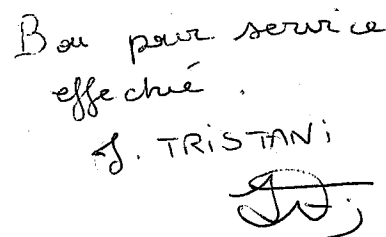 Bon pour service
effectué.
J. TRISTANI